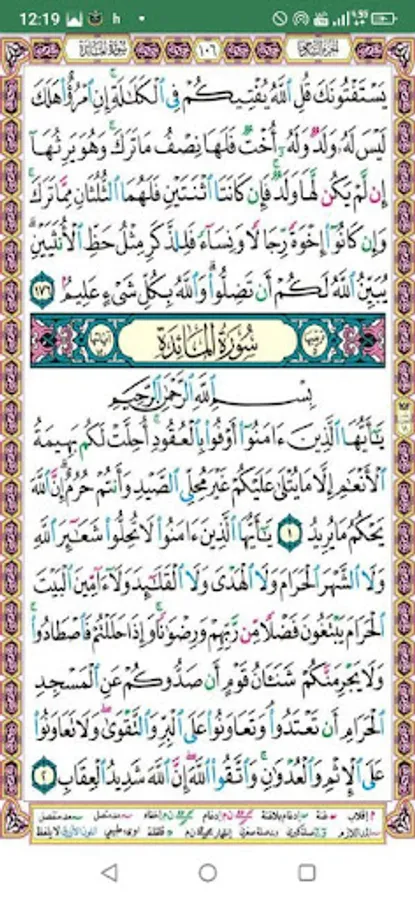 12:19
سورة المائدة
١٠٦
يَسْتَفْتُونَكَ قُلِ اللَّهُ يُفْتِيكُمْ فِي الْكَلَالَةِ إِنِ امْرُؤٌا هَلَكَ
لَيْسَ لَهُ وَلَدٌ وَلَهُ أُخْتٌ فَلَهَا نِصْفُ مَا تَرَكَ وَهُوَ يَرِثُهَا
إِن لَّمْ يَكُن لَّهَا وَلَدٌ فَإِن كَانَتَا اثْنَتَيْنِ فَلَهُمَا الثُّلُثَانِ مِمَّا تَرَكَ
وَإِن كَانُوا إِخْوَةً رِّجَالًا وَنِسَاءً فَلِلذَّكَرِ مِثْلُ حَظِّ الْأُنثَيَيْنِ
يُبَيِّنُ اللَّهُ لَكُمْ أَن تَضِلُّوا وَاللَّهُ بِكُلِّ شَيْءٍ عَلِيمٌ ١٧٦
سُورَةُ الْمَائِدَةِ
بِسْمِ اللَّهِ الرَّحْمَٰنِ الرَّحِيمِ
يَٰأَيُّهَا الَّذِينَ ءَامَنُوا أَوْفُوا بِالْعُقُودِ أُحِلَّتْ لَكُم بَهِيمَةُ
الْأَنْعَٰمِ إِلَّا مَا يُتْلَىٰ عَلَيْكُمْ غَيْرَ مُحِلِّي الصَّيْدِ وَأَنتُمْ حُرُمٌ إِنَّ اللَّهَ
يَحْكُمُ مَا يُرِيدُ ١ يَٰأَيُّهَا الَّذِينَ ءَامَنُوا لَا تُحِلُّوا شَعَٰئِرَ اللَّهِ
وَلَا الشَّهْرَ الْحَرَامَ وَلَا الْهَدْيَ وَلَا الْقَلَٰئِدَ وَلَا ءَامِّينَ الْبَيْتَ
الْحَرَامَ يَبْتَغُونَ فَضْلًا مِّن رَّبِّهِمْ وَرِضْوَٰنًا وَإِذَا حَلَلْتُمْ فَاصْطَادُوا
وَلَا يَجْرِمَنَّكُمْ شَنَـَٔانُ قَوْمٍ أَن صَدُّوكُمْ عَنِ الْمَسْجِدِ
الْحَرَامِ أَن تَعْتَدُوا وَتَعَاوَنُوا عَلَى الْبِرِّ وَالتَّقْوَىٰ وَلَا تَعَاوَنُوا
عَلَى الْإِثْمِ وَالْعُدْوَٰنِ وَاتَّقُوا اللَّهَ إِنَّ اللَّهَ شَدِيدُ الْعِقَابِ ٢